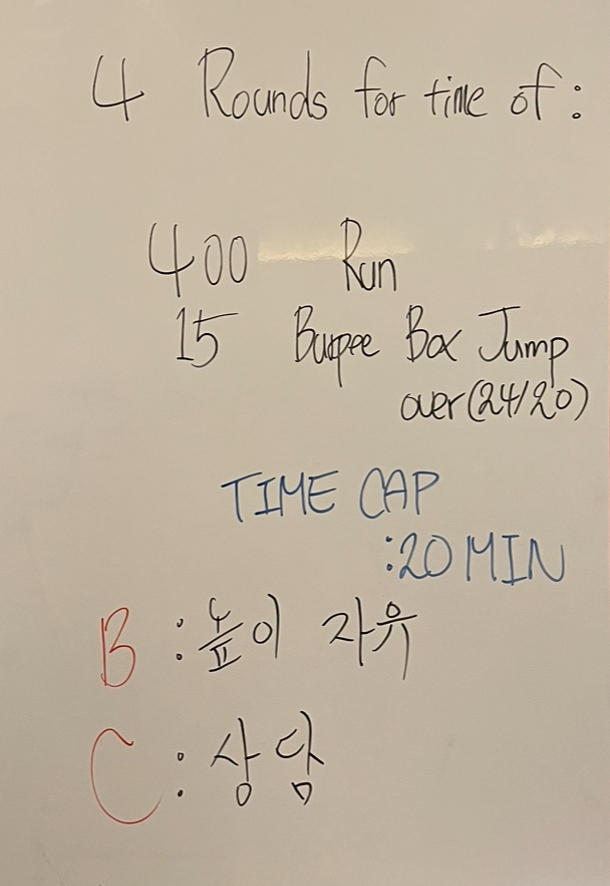 4 Rounds for time of :
400 Run
15 Burpee Box Jump
over (24/20)
TIME CAP
:20 MIN
B : 높이 자유
C : 상담